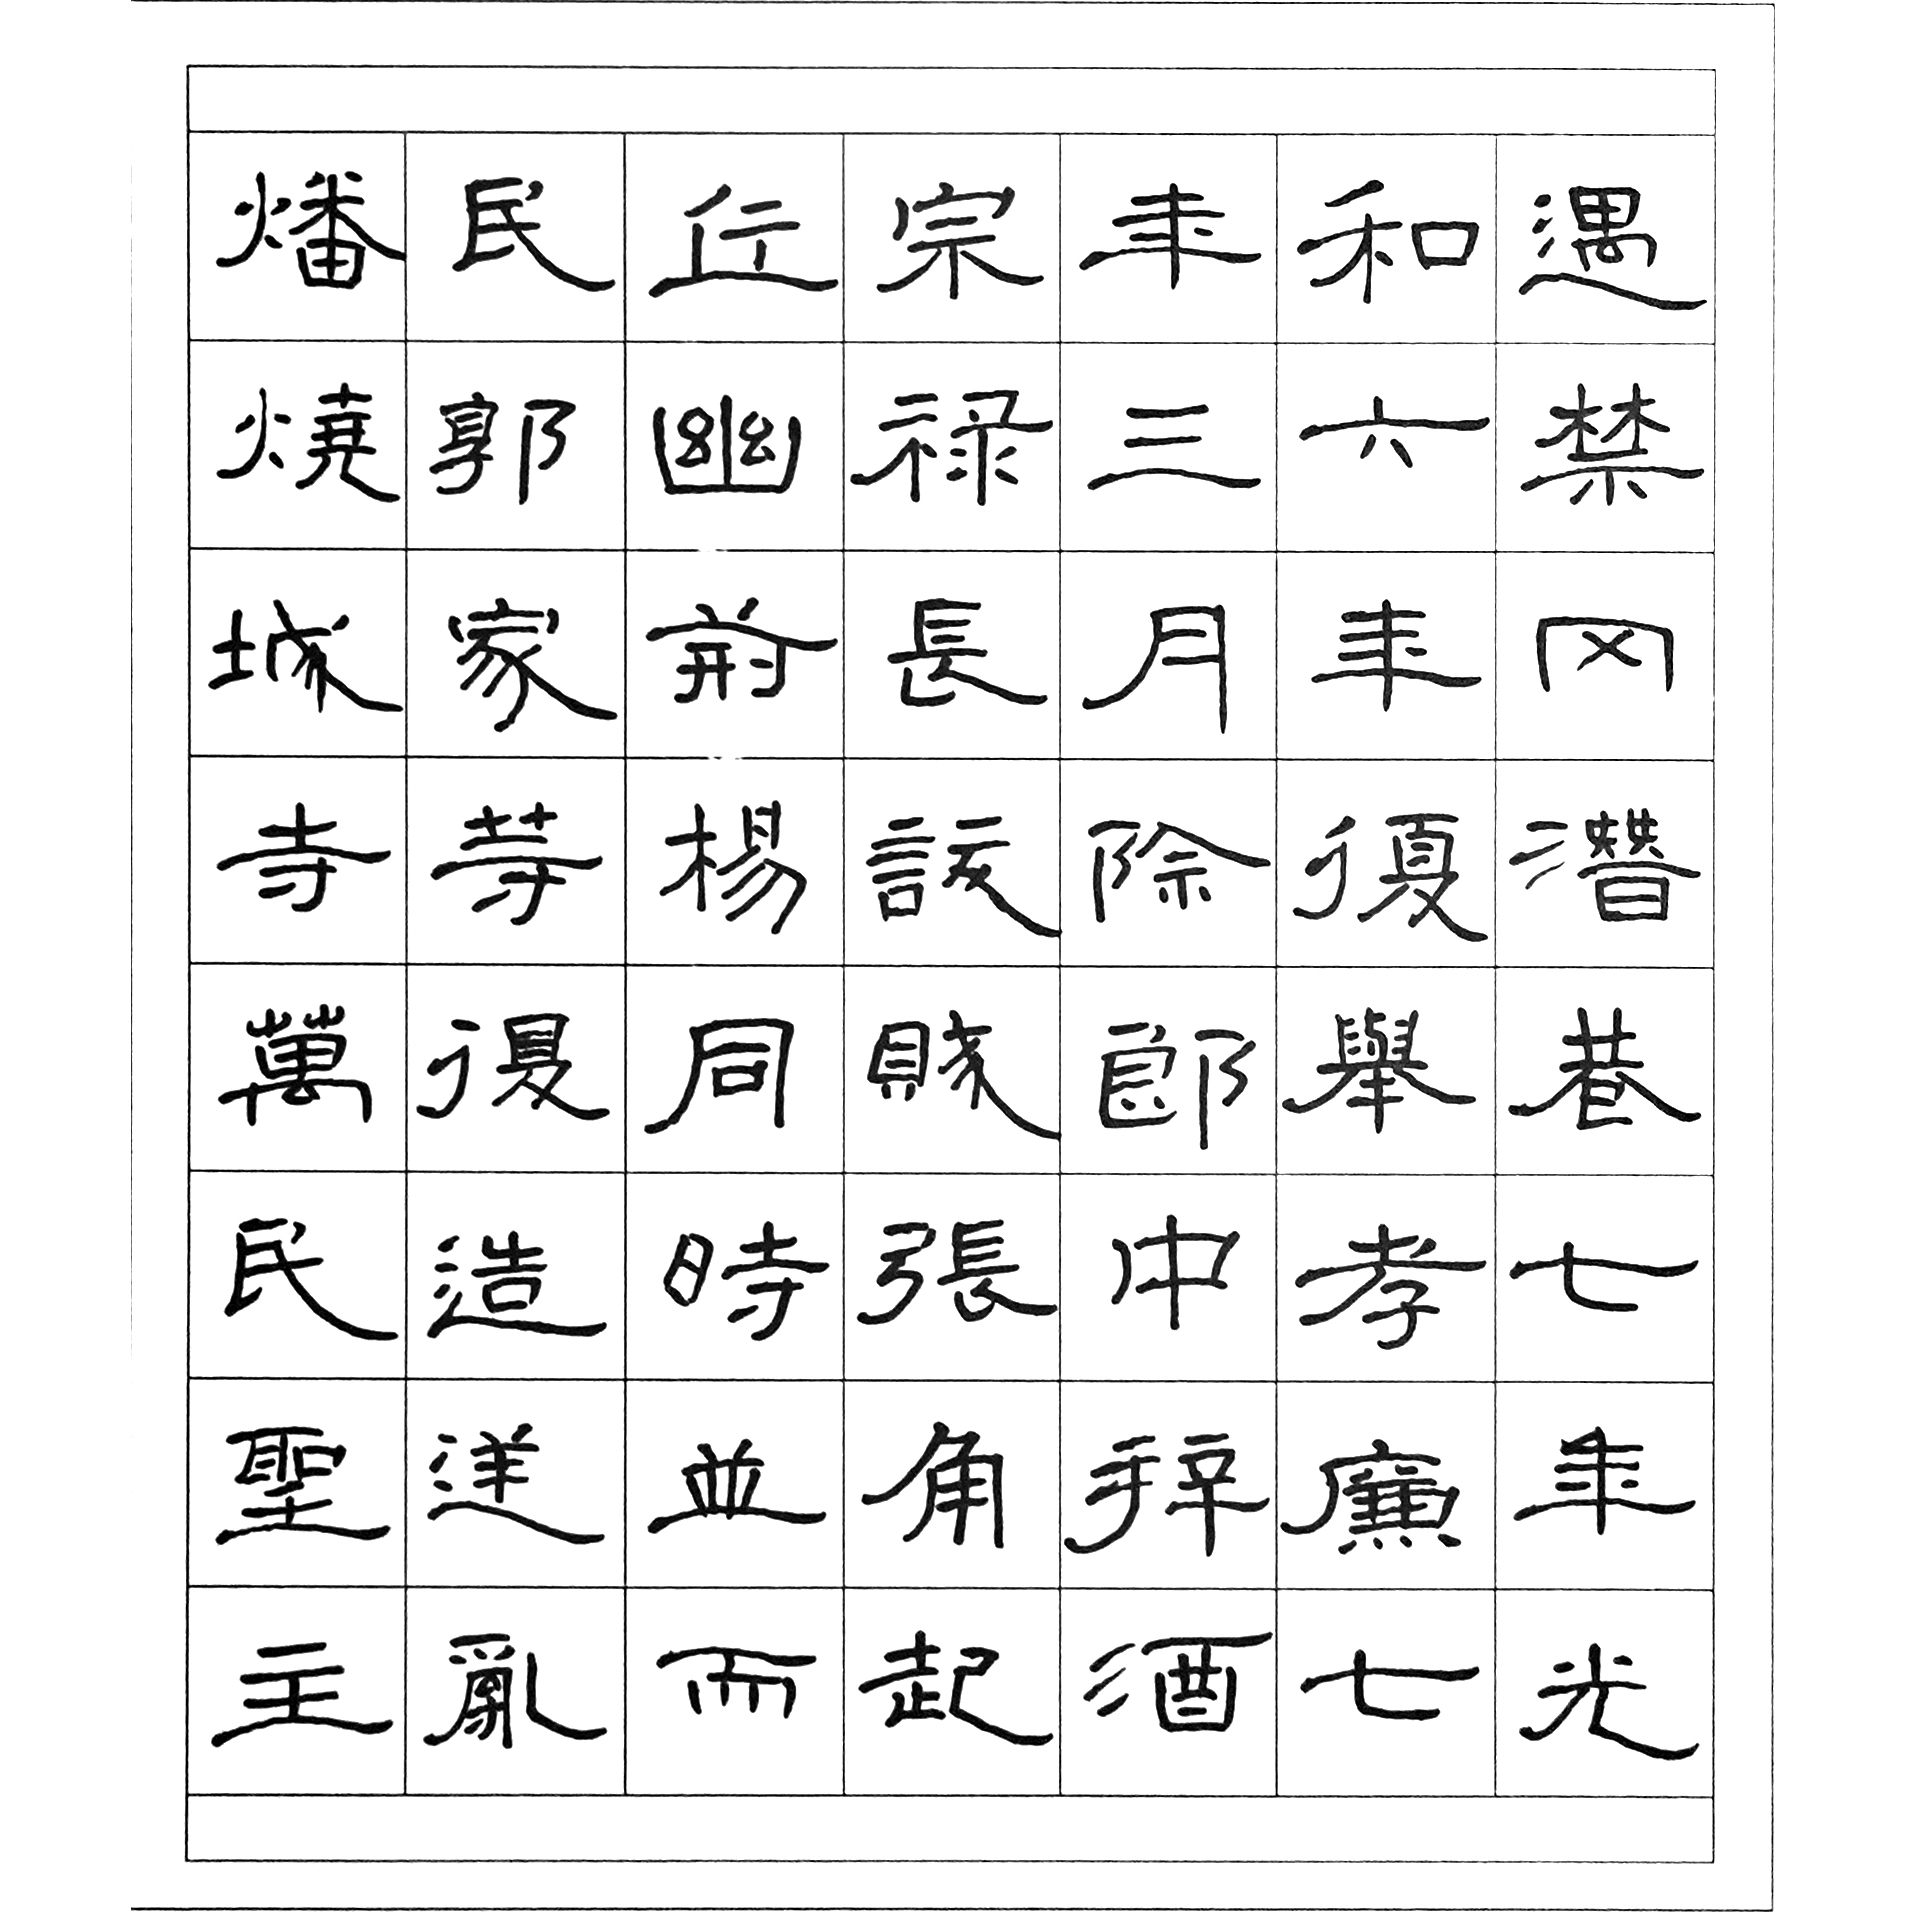 遇禁网潛巷七年光
和六年復舉孝廉七
年三月除郎中拜酒
宗祿長訞賊張角起
丘幽荊楊同時並而
民郭家等復造逆亂
燔燒城寺萬民聖主